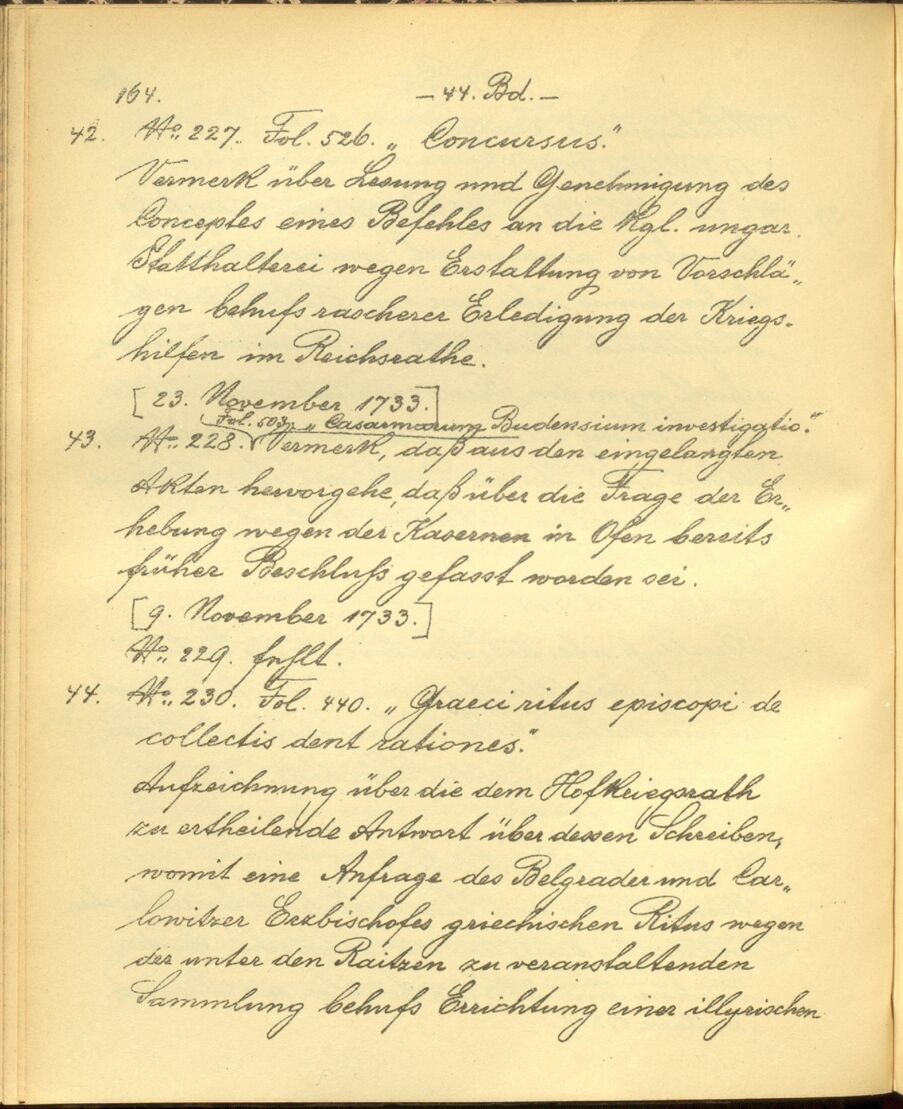 164. — 44. Bd. —
42. No. 227. Fol. 526. „Concursus."
Vermerk über Lesung und Genehmigung des
Conceptes eines Befehles an die Kgl. ungar.
Statthalterei wegen Erstattung von Vorschlä„
gen behufs rascherer Erledigung der Kriegs-
hilfen im Reichsrathe.
[23. November 1733.]
Fol. 503. „Casarmarum Budensium investigatio."
43. No. 228. Vermerk, daß aus den eingelangten
Akten hervorgehe, daß über die Frage der Er„
hebung wegen der Kasernen in Ofen bereits
früher Beschluß gefasst worden sei.
[9. November 1733.]
No. 229. fehlt.
44. No. 230. Fol. 440. „Graeci ritus episcopi de
collectis dent rationes."
Aufzeichnung über die dem Hofkriegsrath
zu ertheilende Antwort über dessen Schreiben,
womit eine Anfrage des Belgrader und Car„
lowitzer Erzbischofes griechischen Ritus wegen
der unter den Raitzen zu veranstaltenden
Sammlung behufs Errichtung einer illyrischen